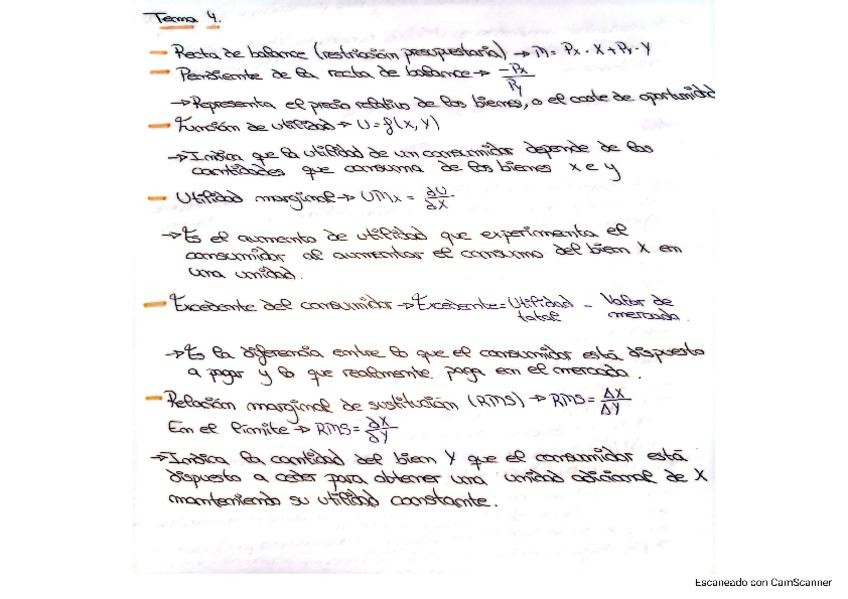 Tema 4.
- Recta de balance (restricción presupuestaria) → m = Px · X + Py · Y
- Pendiente de la recta de balance → -Px/Py
→ Representa el precio relativo de los bienes, o el coste de oportunidad
- Función de utilidad → U = f(X, Y)
→ Indica que la utilidad de un consumidor depende de las
cantidades que consuma de los bienes x e y
- Utilidad marginal → UMx = ∂U/∂X
→ Es el aumento de utilidad que experimenta el
consumidor al aumentar el consumo del bien X en
una unidad.
- Excedente del consumidor → Excedente = Utilidad total - Valor de mercado.
→ Es la diferencia entre lo que el consumidor está dispuesto
a pagar y lo que realmente paga en el mercado.
- Relación marginal de sustitución (RMS) → RMS = ΔX/ΔY
En el límite → RMS = ∂X/∂Y
→ Indica la cantidad del bien Y que el consumidor está
dispuesto a ceder para obtener una unidad adicional de X
manteniendo su utilidad constante.
Escaneado con CamScanner